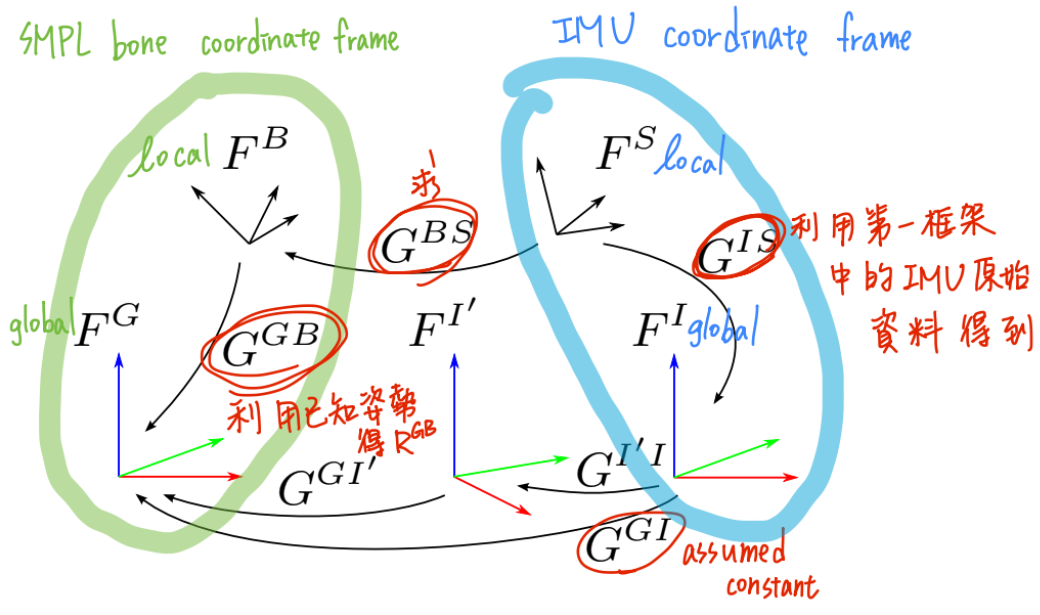 SMPL bone coordinate frame
IMU coordinate frame
local F^B
F^S local
求
G^{BS}
G^{IS}
利用第一框架
中的IMU原始
資料得到
global F^G
G^{GB}
F^{I'}
F^I global
利用已知姿勢
得R^{GB}
G^{GI'}
G^{I'I}
G^{GI}
assumed
constant